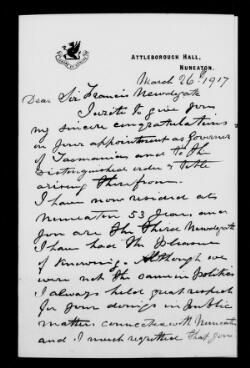 ATTLEBOROUGH HALL,
NUNEATON.
March 26th 1917
Dear Sir Francis Newdegate
I write to give you
my sincere congratulations
on your appointment as Governor
of Tasmania and to the
distinguished order & title
arising therefrom.
I have now resided at
Nuneaton 53 years and
you are the third Newdegate
I have had the pleasure
of knowing. Although we
were not the same in politics
I always held great respect
for your doings in public
matters connected with Nuneaton
and I much regretted that you